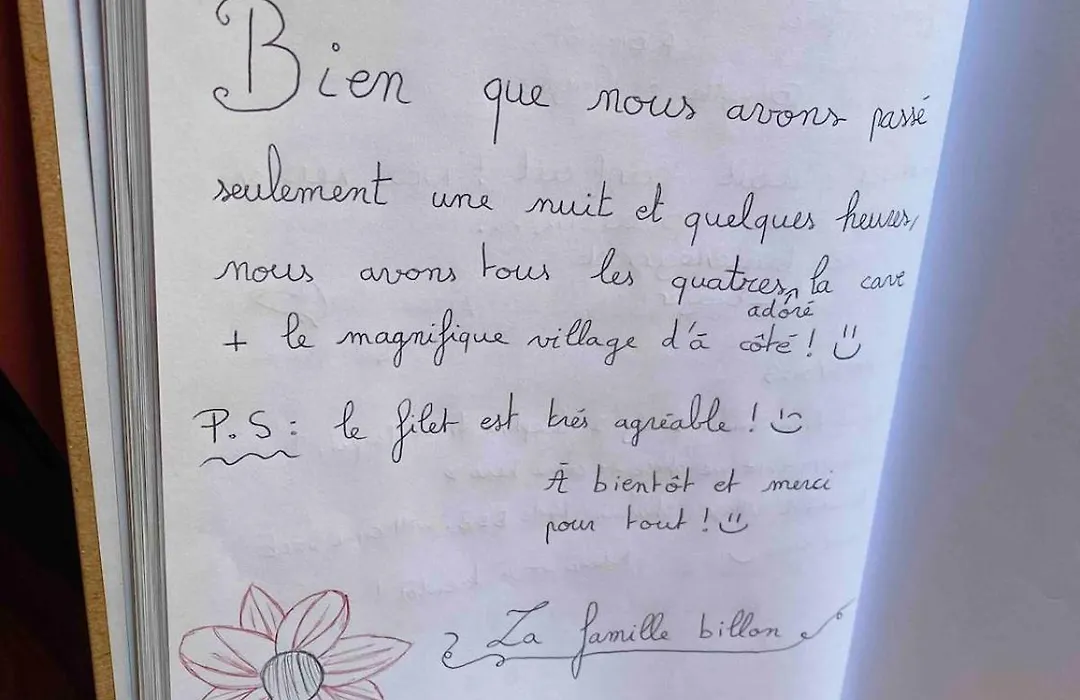 Bien que nous avons passé
seulement une nuit et quelques heures,
nous avons tous les quatres, la cave
adoré
+ le magnifique village d'ā côté ! :)
P.S : le filet est trés agréable ! ;)
Ā bientôt et merci
pour tout ! :)
La famille billon